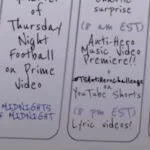 of
Thursday
Night
Football
on Prime
Video
MIDNIGHTS
MIDNIGHT
surprise
(8 am EST)
Anti-Hero
Music Video
Premiere!!
+
#TSAntiHeroChallenge
on
YouTube Shorts
(8 pm EST)
Lyric videos!